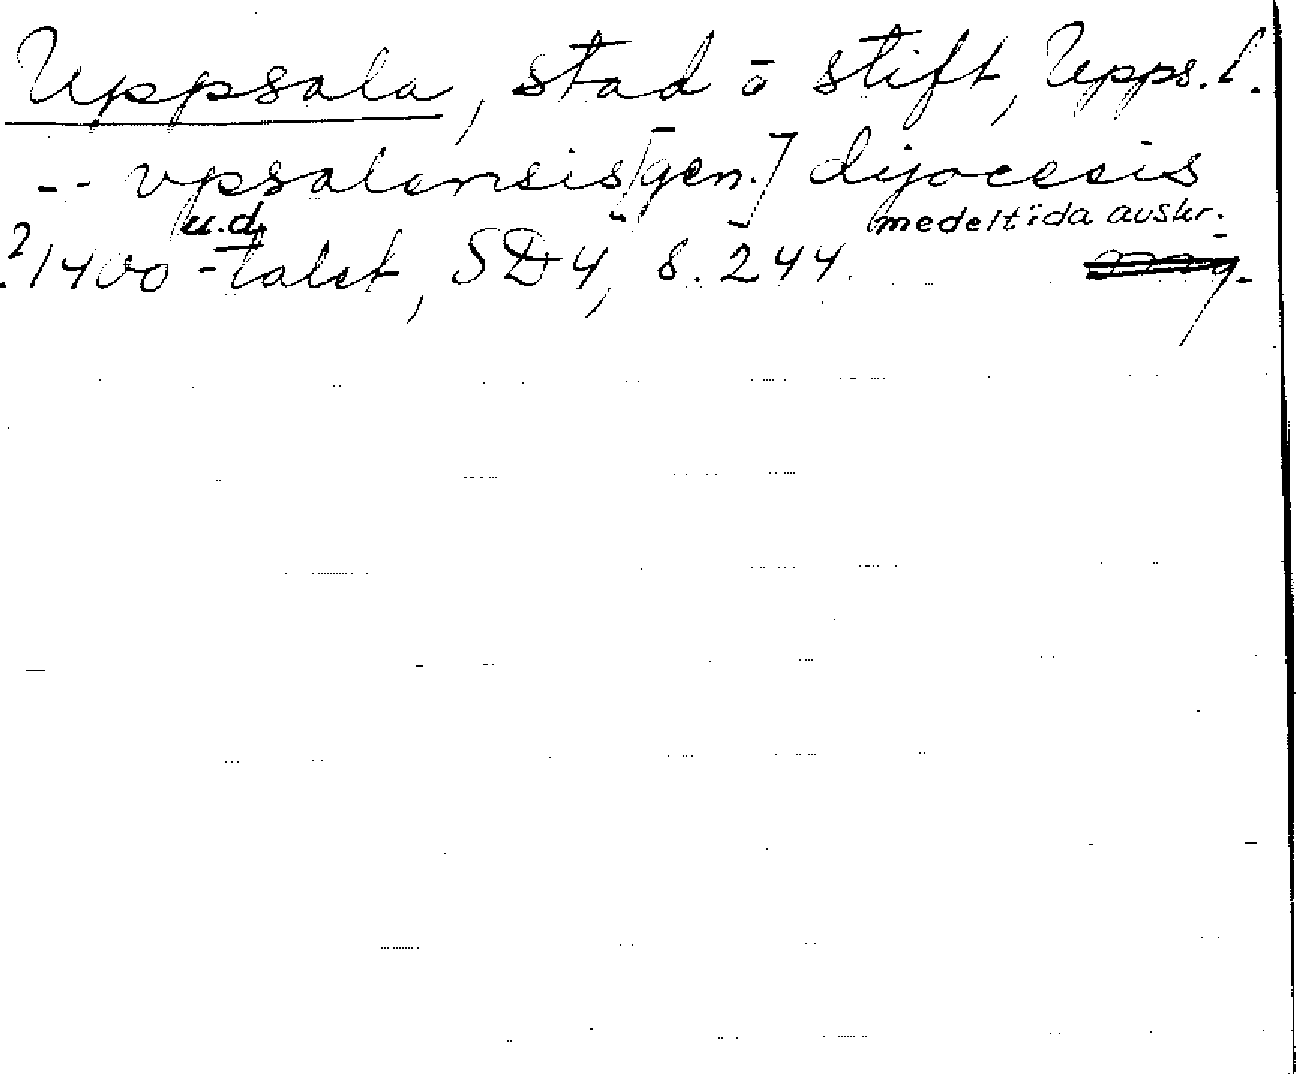 Uppsala, stad o stift, Upps. l.
-- vpsalensis [gen.] dijocesis
u.d. medeltida avskr.
?1400-talet, SD 4, s. 244.